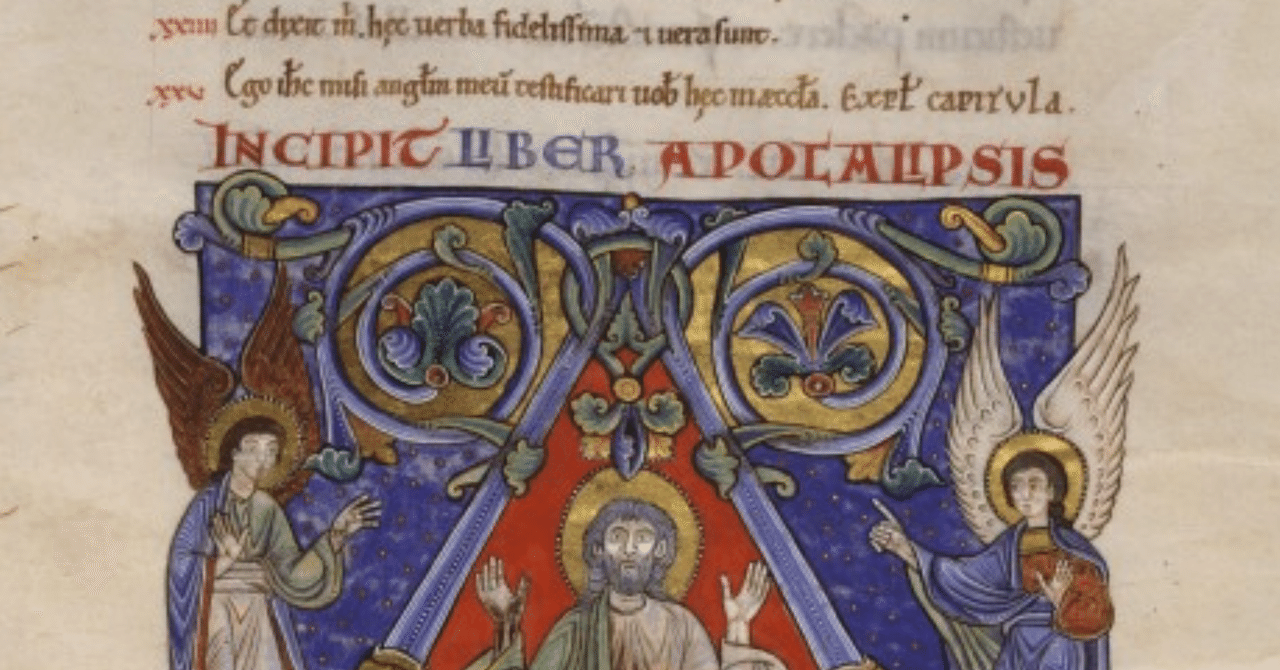 xxiiii Et dixit m̅. hęc uerba fidelissima ⁊ uera sunt.
xxv Ego ih̅c misi angl̅m meū testificari uob̅ hęc in æccl̅a. Expl̅ capitula.
INCIPIT LIBER APOCALIPSIS